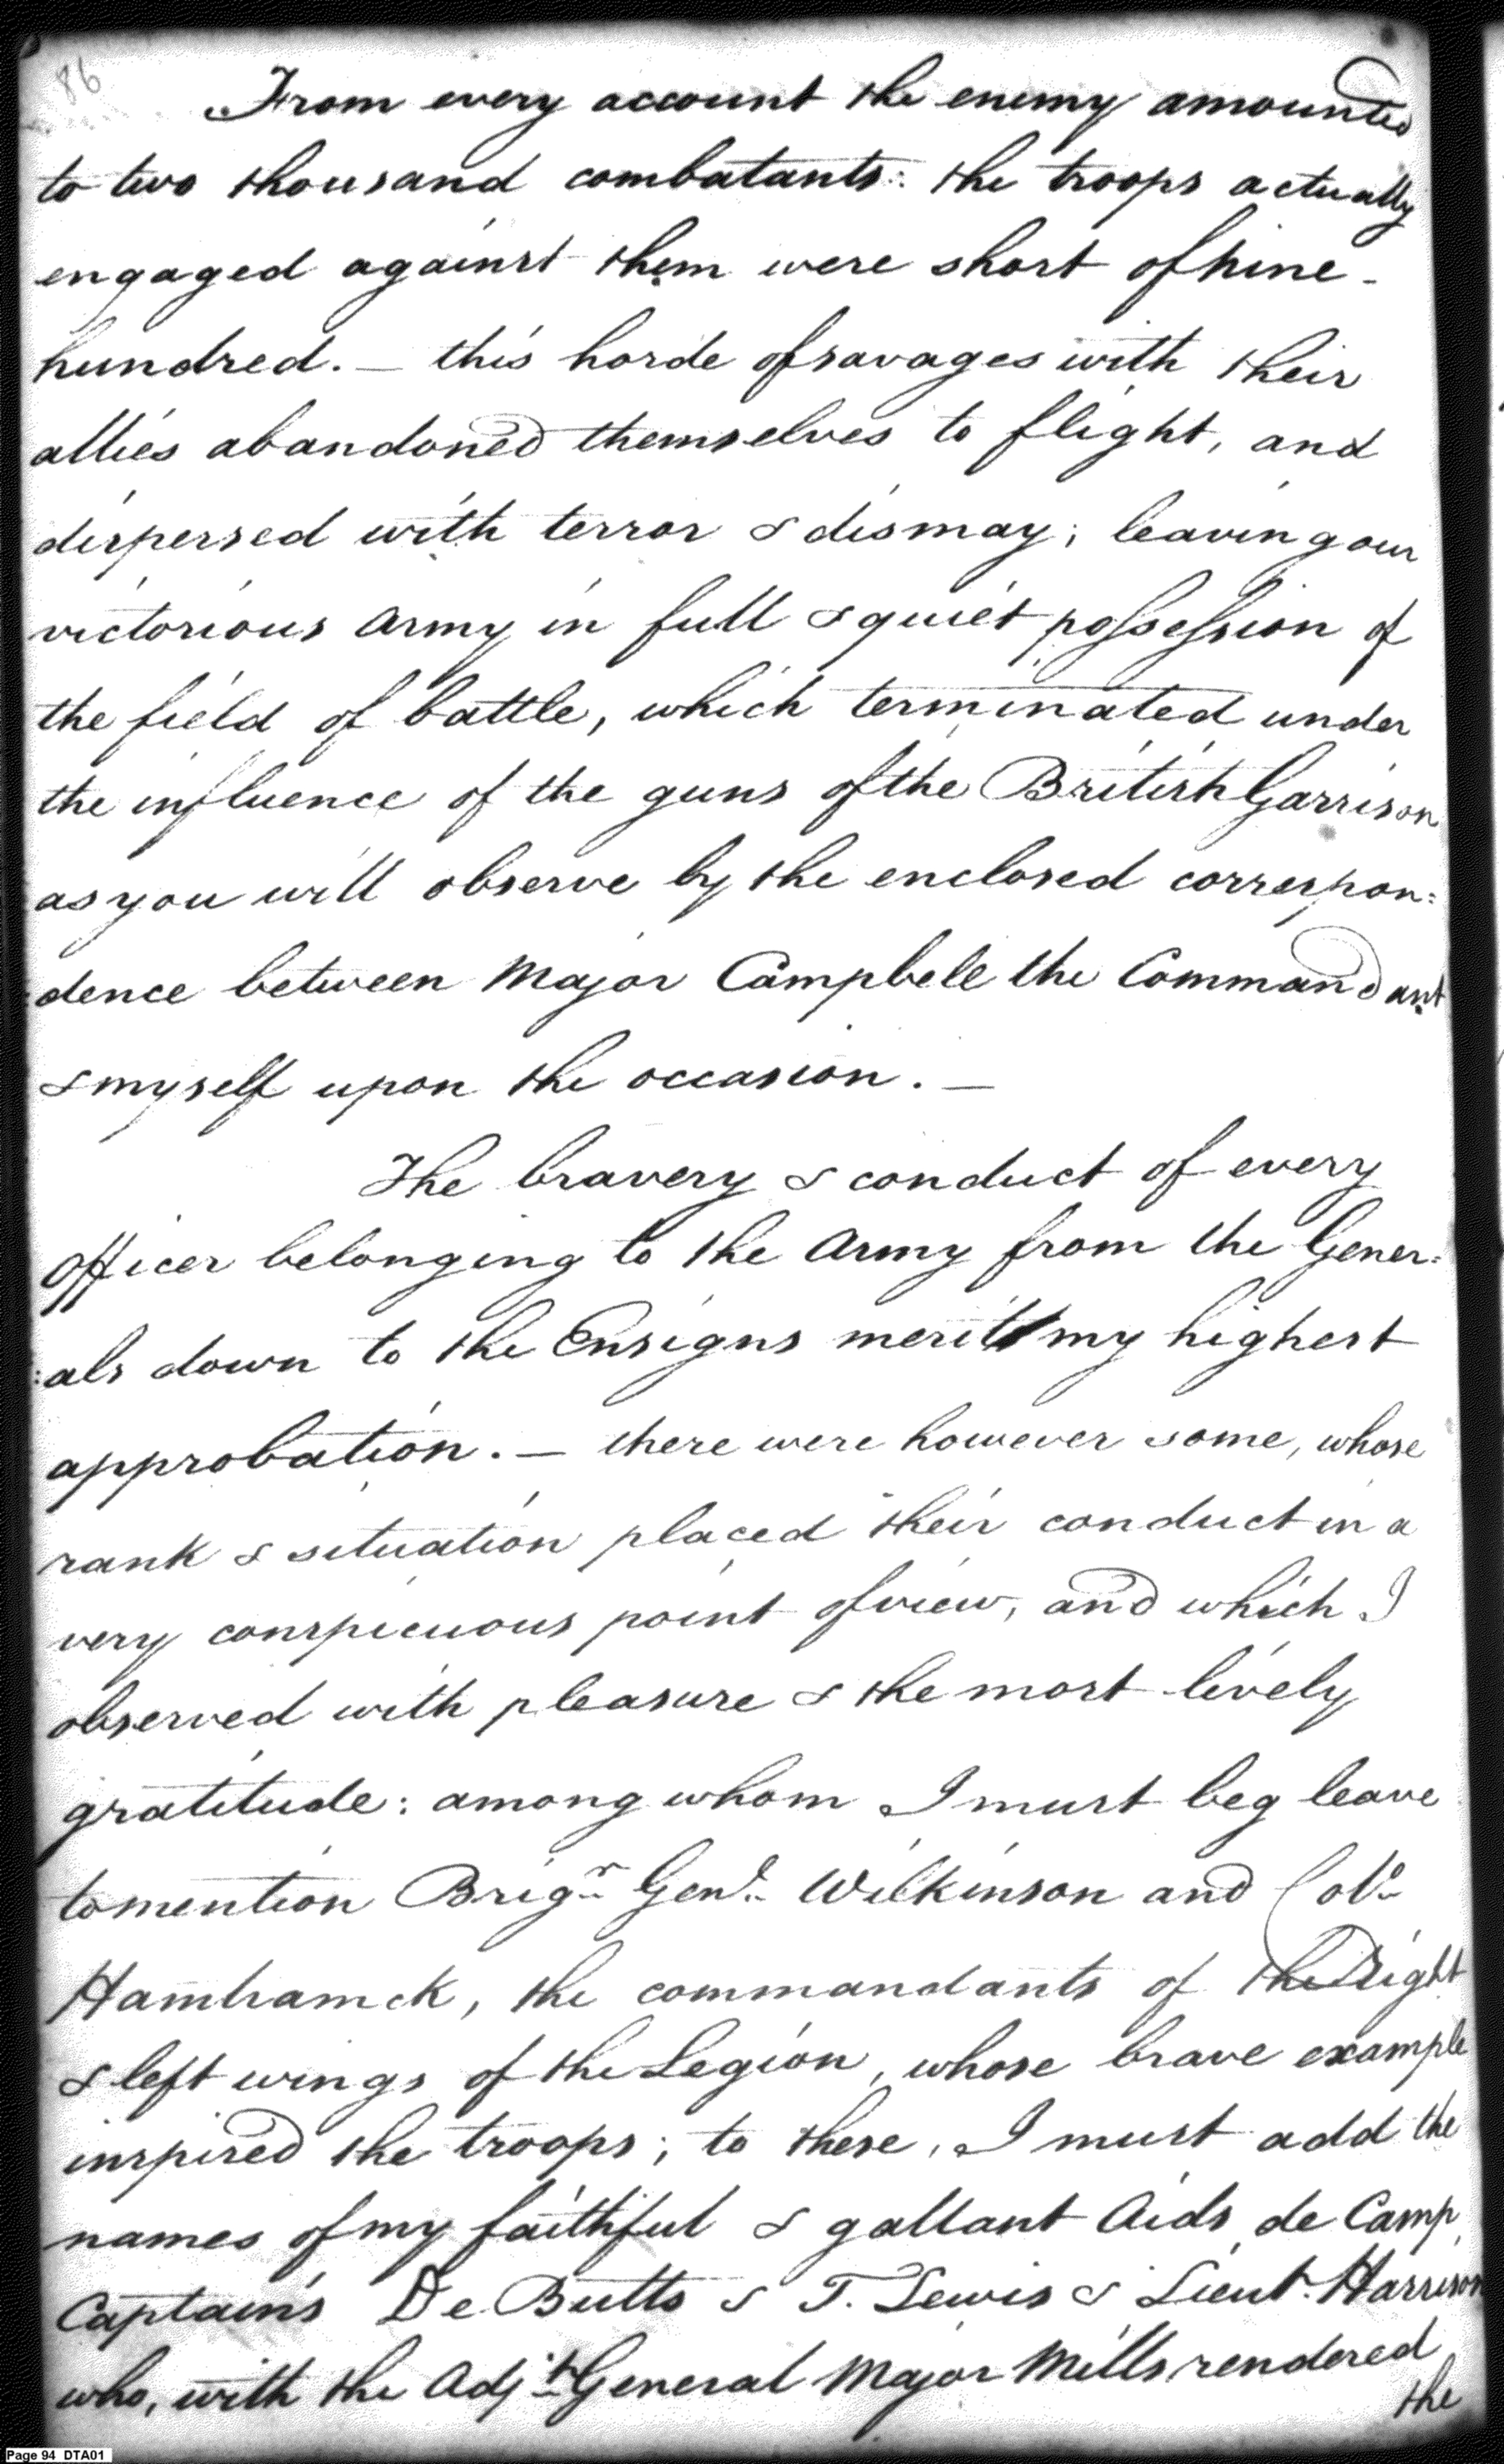 86
From every account the enemy amounted
to two thousand combatants: the troops actually
engaged against them were short of nine-
hundred. — this horde of savages with their
allies abandoned themselves to flight, and
dispersed with terror & dismay; leaving our
victorious army in full & quiet possession of
the field of battle, which terminated under
the influence of the guns of the British Garrison
as you will observe by the enclosed correspon:
:dence between Major Campbell the Commandant
& myself upon the occasion. —
The bravery & conduct of every
Officer belonging to the Army from the Gener:
:als down to the Ensigns merit my highest
approbation. — there were however some, whose
rank & situation placed their conduct in a
very conspicuous point of view, and which I
observed with pleasure & the most lively
gratitude: among whom I must beg leave
to mention Brigr. Genl. Wilkinson and Colo.
Hamtramck, the commandants of the Right
& left wings of the Legion, whose brave example
inspired the troops; to these, I must add the
names of my faithful & gallant Aids de Camp
Captains De Butts & T. Lewis & Lieut. Harrison
who, with the Adjt. General Major Mills rendered
the
Page 94 DTA01